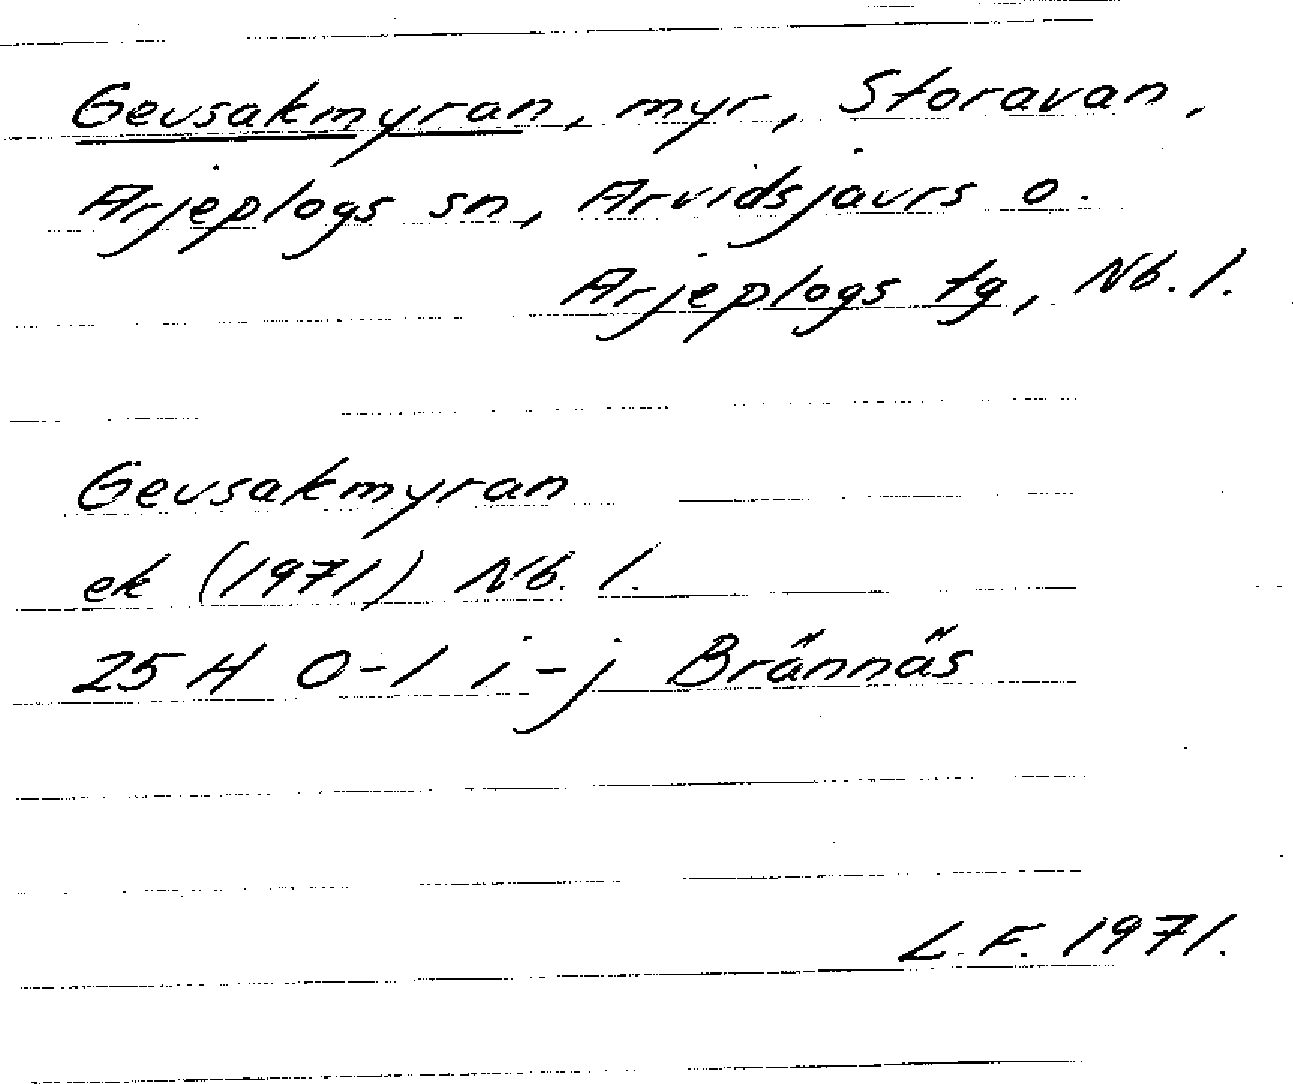 Gevsakmyran, myr, Storavan,
Arjeplogs sn, Arvidsjaurs o.
Arjeplogs tg, Nb. l.
Gevsakmyran
ek (1971) Nb. l.
25 H 0-1 i-j Brännäs
L.F. 1971.